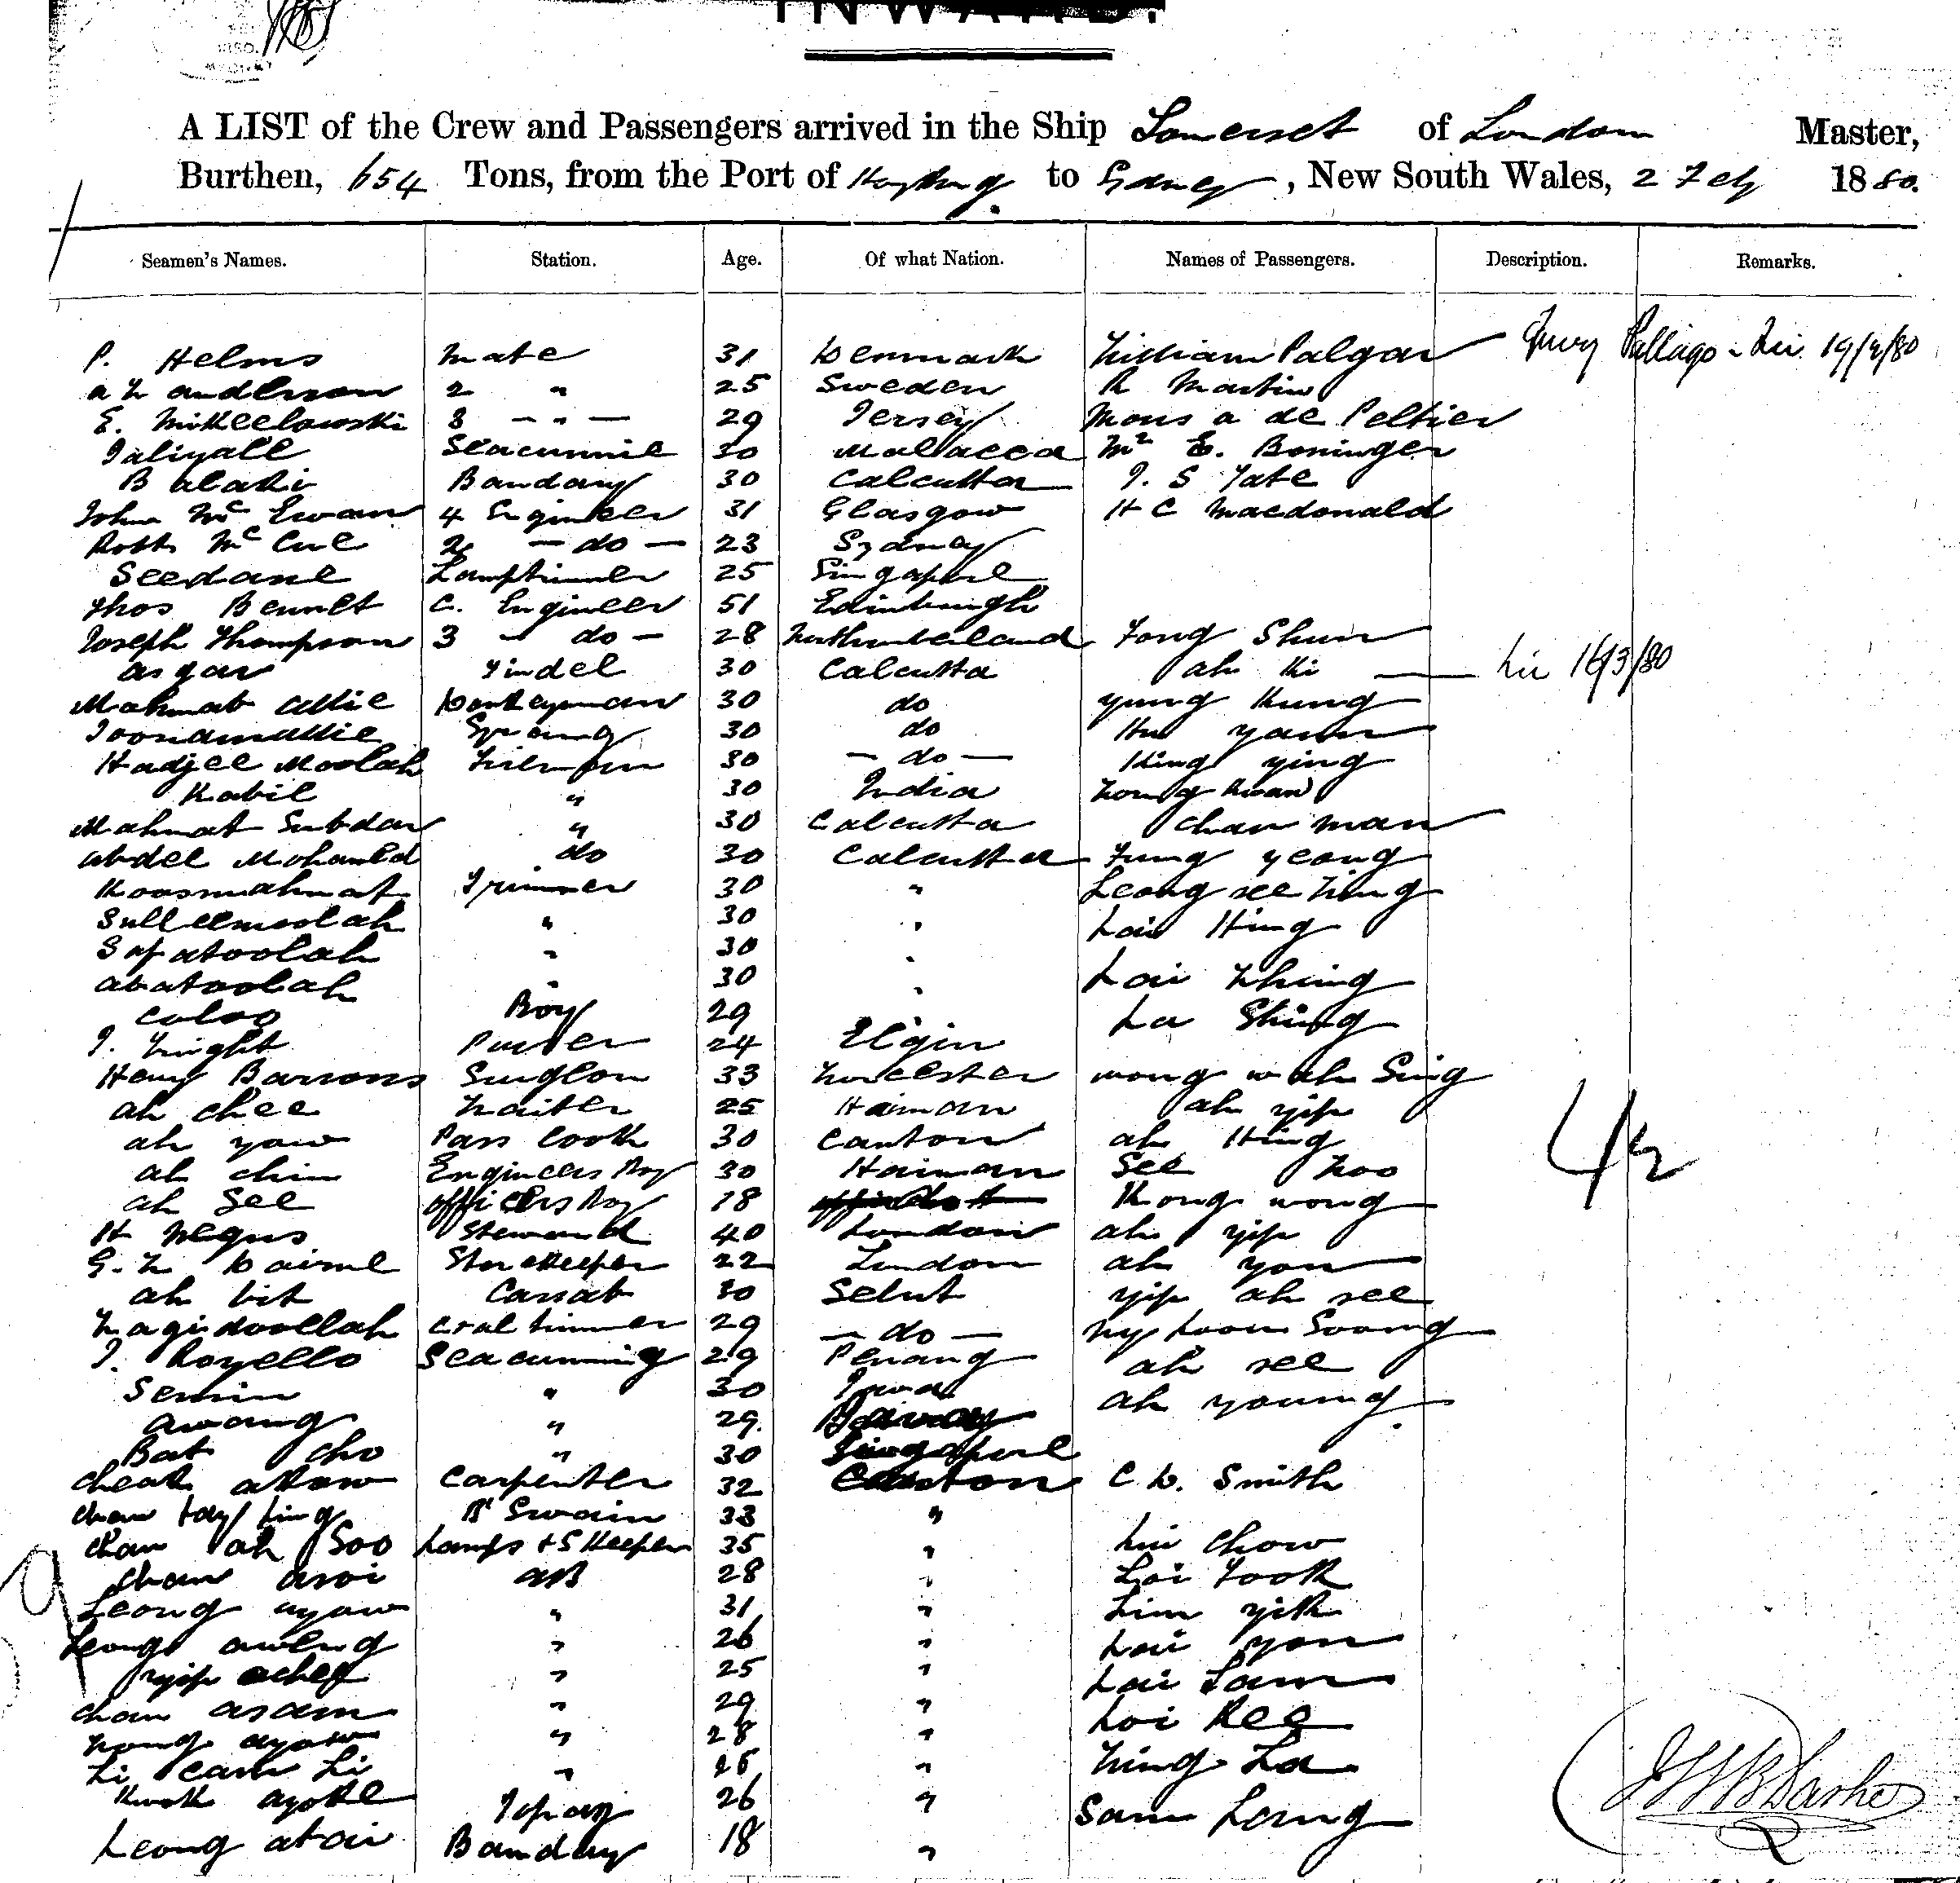 INWARD.
A LIST of the Crew and Passengers arrived in the Ship Somerset of London Master,
Burthen, 654 Tons, from the Port of to Sydney, New South Wales, 2 Feby 1880.
Seamen's Names. Station. Age. Of what Nation. Names of Passengers. Description. Remarks.
P. Helms Mate 31 Denmark William Palgar 19/2/80
A W Anderson 2 " 25 Sweden R Martin
E. Mikeelowski 3 - " - 29 Jersey Mons A de Peltier
Seacunnie 30 Malacca Mr E. Boninger
B alaki Bandary 30 Calcutta J. S Tate
John McEwan 4 Engineer 31 Glasgow H C Macdonald
Robt McCue 2 - do - 23 Sydney
Seedane Lamptrimmer 25 Singapore
Thos Bennet C. Engineer 51 Edinburgh
Joseph Thompson 3 - do - 28 Northumberland Fong Shun
Asgar Tindel 30 Calcutta Ah Ki 16/3/80
Mahmat Allie Donkeyman 30 do Yung Kung
30 do Yann
Hadjee Moolah Fireman 30 - do - King Ying
Kabil " 30 India Wong Kwan
Mahmat Subdar " 30 Calcutta Chan Man
Abdel Mohamed do 30 Calcutta Fung Yeong
Koosmahmat Trimmer 30 " Leong See Wing
Sulleemoolah " 30 " Lai Hing
Safatoolah " 30 "
Abatoolah " 30 " Lai Whing
Caloo Boy 29 La Shing
J. Wright Purser 24 Elgin
Harry Barrons Surgeon 33 Worcester Wong Wah Sing
Ah Chee Waiter 25 Hainan Ah Yip
Ah Yaw Pass Cook 30 Canton Ah Hing
Ah Chin Engineers Boy 30 Hainan See Woo
Ah See Officers Boy 18 Kong Wong
H Negus Steward 40 London Ah Yip
G. W Dairne Storekeeper 22 London Ah You
Ah Bit Cassab 30 Selut Yip Ah See
Wagidoollah Coal Trimmer 29 - do - Ny Loon Soong
J. Royello Seacunning 29 Penang Ah See
Semin " 30 Java Ah Young
Awang " 29
Bat Cho " 30 Singapore
Cheak Akow Carpenter 32 Canton C. D. Smith
Chan Tay Ling Bt Swain 33 "
Chan Ah Soo Lamps & S Keeper 35 " Lui Chow
Chan Asoi AB 28 " Loi Fook
Leong Ayow " 31 " Lim Yik
Leong Aweng " 26 " Lai You
Yip Achep " 25 " Lai Lam
Chan Asam " 29 " Loi Kee
Wong Ayow " 28 " Wing La
Li Cam Li " 25 "
Kwok Ayoke Topaz 26 " Sam Long
Leong Atai Bandary 18 "
42